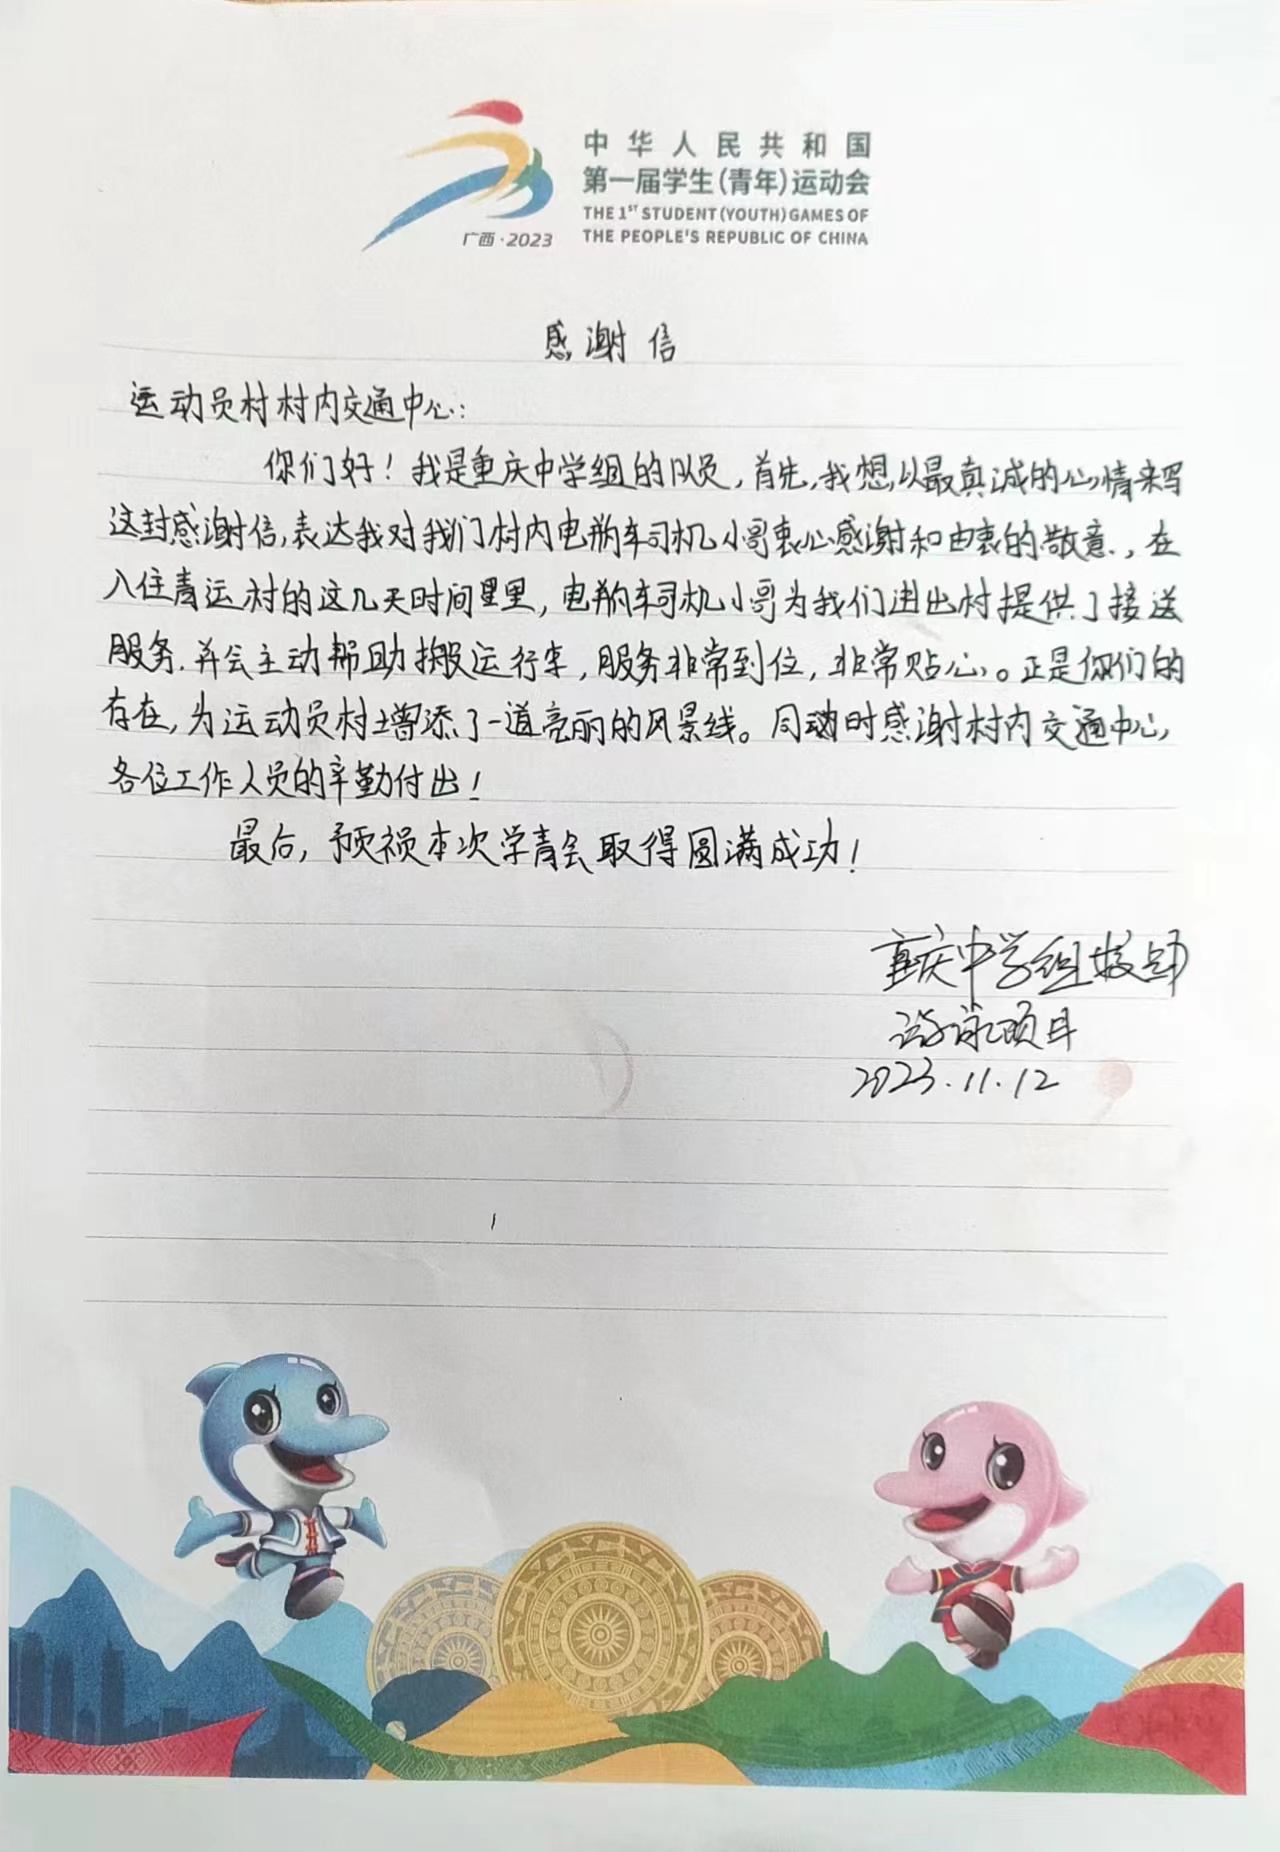 中华人民共和国
第一届学生(青年)运动会
THE 1ST STUDENT (YOUTH) GAMES OF
THE PEOPLE'S REPUBLIC OF CHINA
广西·2023
感谢信
运动员村村内交通中心:
你们好!我是重庆中学组的队员,首先,我想以最真诚的心情来写
这封感谢信,表达我对我们村内电瓶车司机小哥衷心感谢和由衷的敬意.,在
入住青运村的这几天时间里里,电瓶车司机小哥为我们进出村提供了接送
服务.并会主动帮助搬运行李,服务非常到位,非常贴心。正是你们的
存在,为运动员村增添了一道亮丽的风景线。同时感谢村内交通中心,
各位工作人员的辛勤付出!
最后,预祝本次学青会取得圆满成功!
重庆中学组
游泳项目
2023.11.12